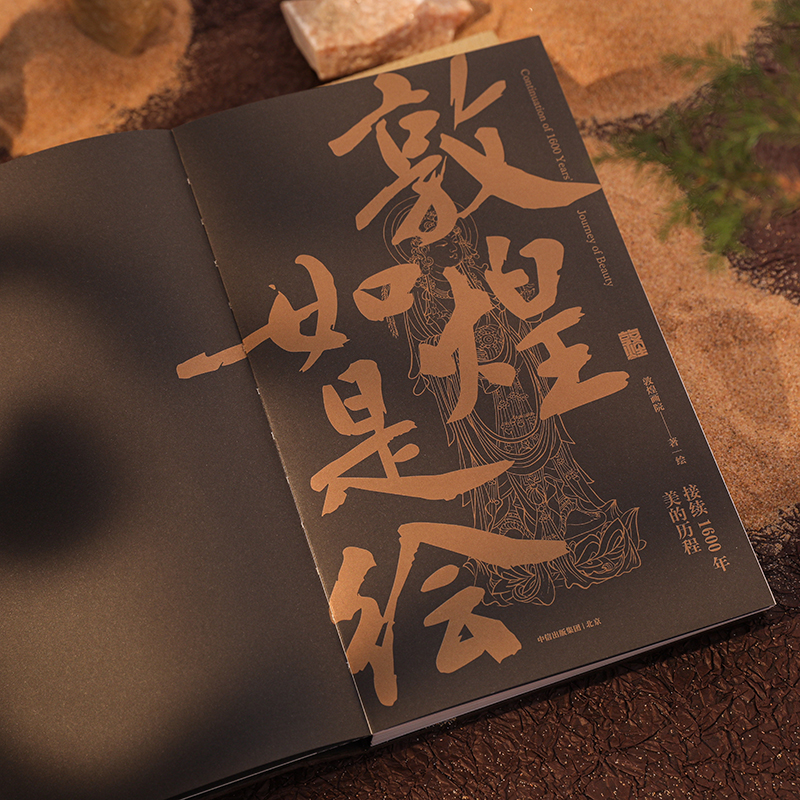 敦煌
如是绘
Continuation of 1600 Years'
Journey of Beauty
敦煌画院——著 绘
接续1600年
美的历程
中信出版集团|北京